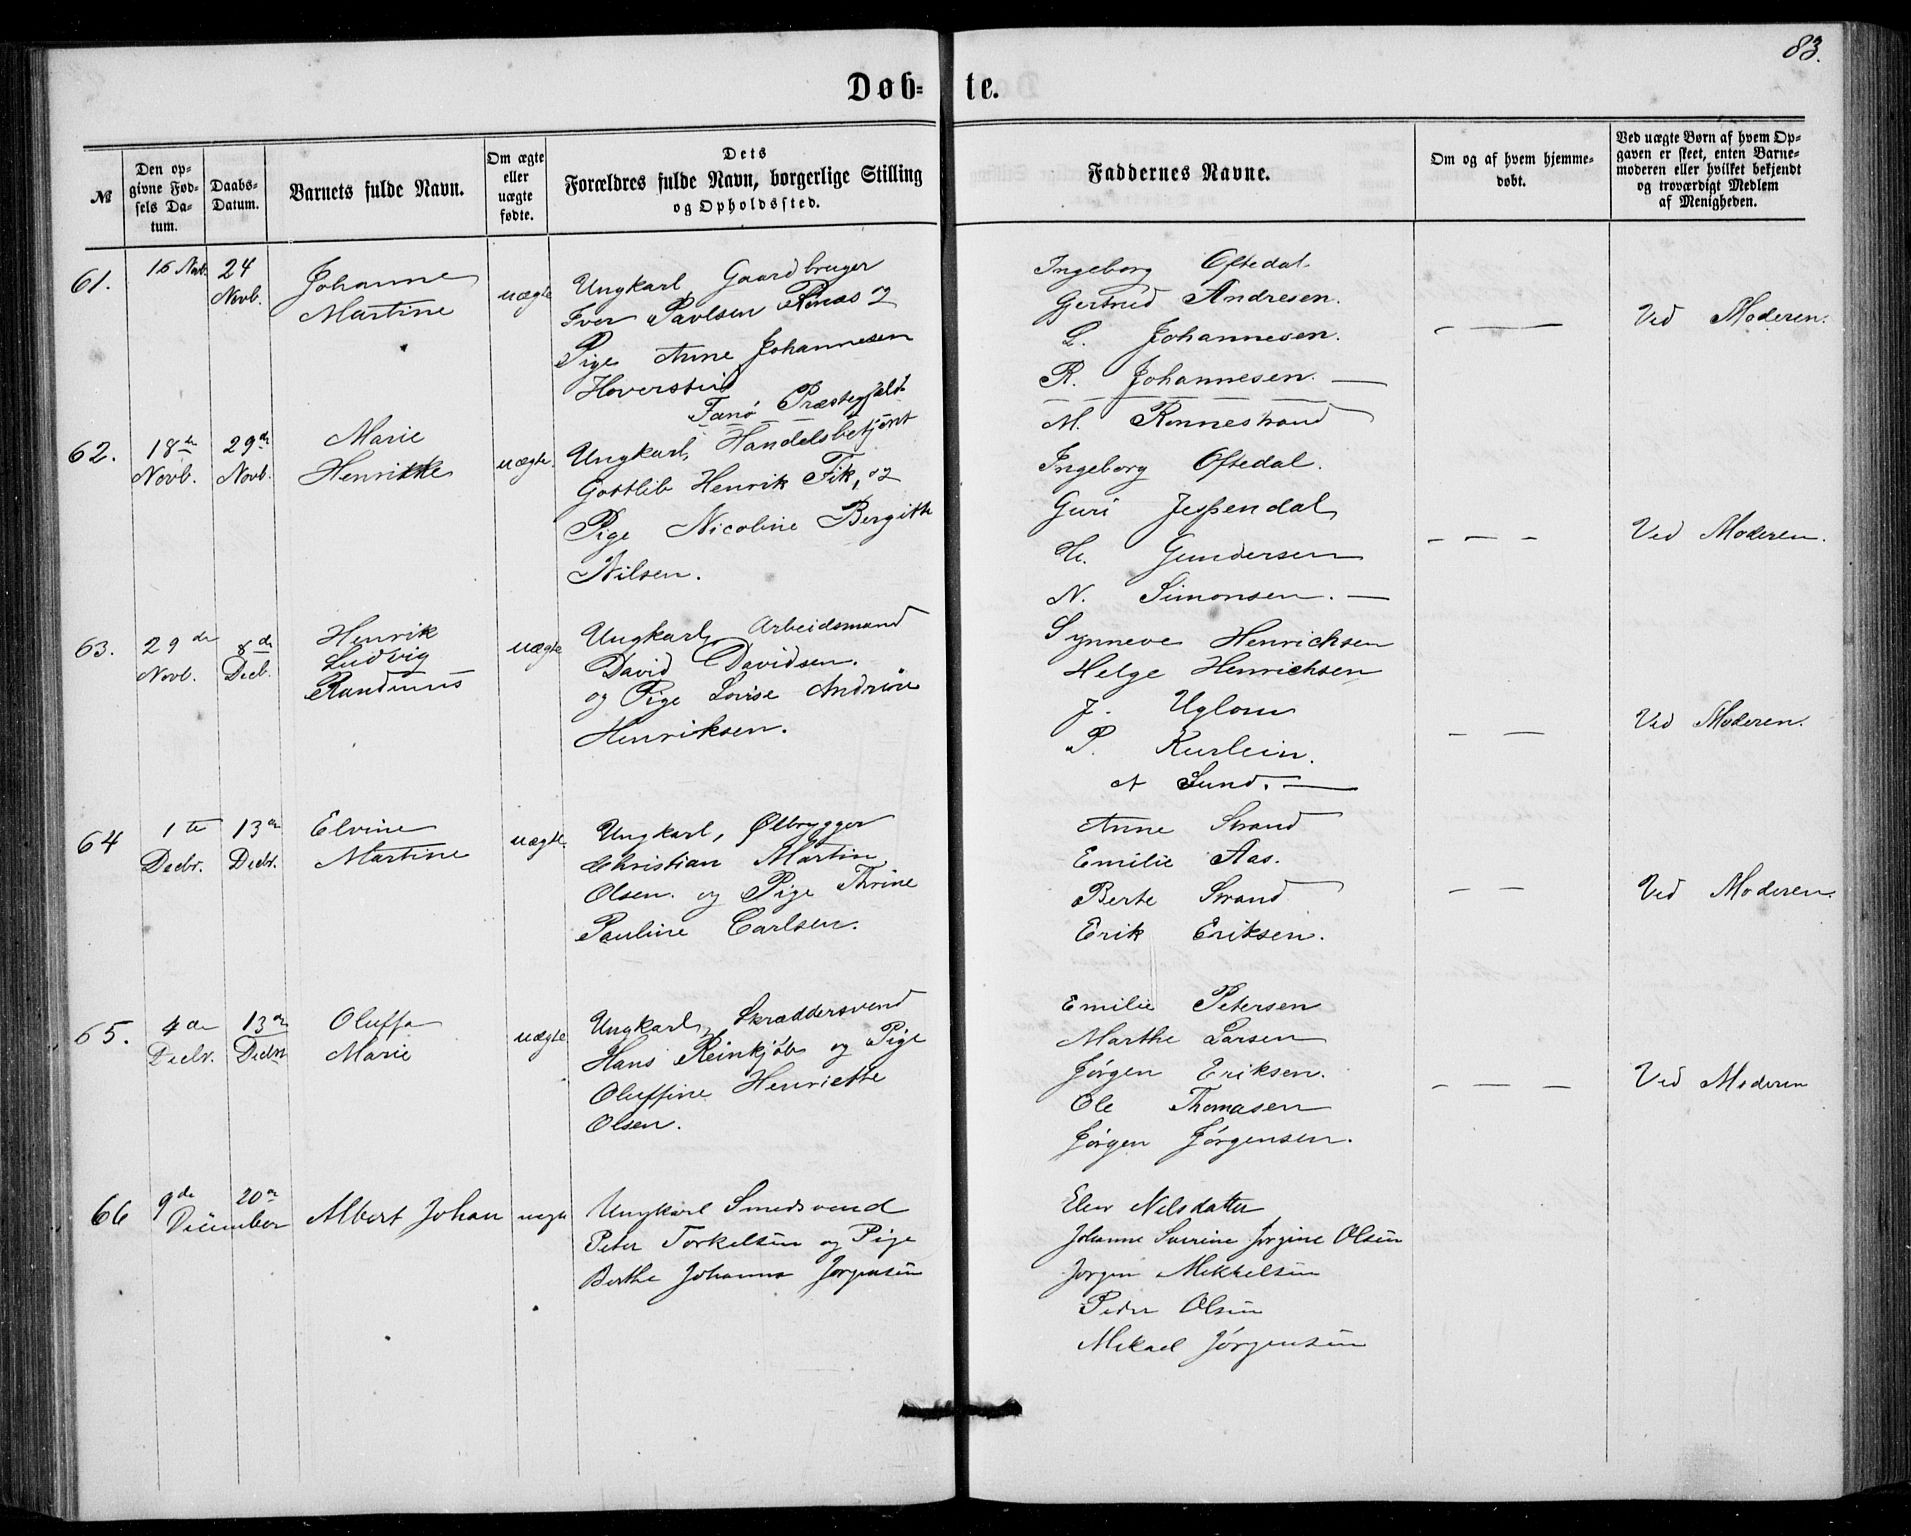 83.
Døb-te.
№
Den op-
givne Fød-
sels Da-
tum.
Daabs-
Datum.
Barnets fulde Navn.
Om ægte
eller
uægte
fødte.
Dets
Forældres fulde Navn, borgerlige Stilling
og Opholdssted.
Faddernes Navne.
Om og af hvem hjemme-
døbt.
Ved uægte Børn af hvem Op-
gaven er skeet, enten Barne-
moderen eller hvilket bekjendt
og troværdigt Medlem
af Menigheden.
61.
16 Novb.
24
Novb.
Johanne
Martine
uægte
Ungkarl, Gaardbruger
Iver Paulsen og
Pige Anne Johannesen
Hoverstin
Fanø Præstegjæld.
Ingeborg Oftedal.
Gertrud Andresen.
L. Johannesen.
R. Johannesen. —
M. Rennestrand
— — —
Ved Moderen.
62.
18de
Novb.
29de
Novb.
Marie
Henrikke
uægte.
Ungkarl, Handelsbetjent
Gottlib Henrik Fik, og
Pige Nicoline Bergitte
Nilsen.
Ingeborg Oftedal.
Guri Jespendal
H. Gundersen
N. Simonsen. —
— — —
Ved Moderen.
63.
29de
Novb.
8de
Decb.
Henrik
Ludvig
Randinius
uægte
Ungkarl, Arbeidsmand
David Davidsen.
og Pige Lovise Andrine
Henriksen.
Synneve Henrichsen
Helge Henrichsen
J. Uglom
P. Kurlein.
A Lund. —
— —
Ved Moderen.
64
1te
Decbr.
13de
Decbr.
Elvine
Martine
uægte.
Ungkarl, Ølbrygger
Christian Martin
Olsen. og Pige Thrine
Pauline Carlsen.
Anne Strand
Emilie Aas.
Berte Strand
Erik Eriksen.
— —
Ved Moderen.
65.
4de
Decbr.
13de
Decbr
Oluffa
Marie
uægte
Ungkarl, Skræddersvend
Hans Reinkjøb og Pige
Oluffine Henriette
Olsen.
Emilie Petersen
Marthe Larsen
Jørgen Eriksen.
Ole Thomasen
Jørgen Jørgensen.
— — —
Ved Moderen
66
9de 20de
December
Albert Johan
uægte
Ungkarl Smedsvend
Peter Torkelsen og Pige
Berthe Johanna Jørgensen
Elen Nilsdatter
Johanne Severine Jørgine Olsen
Jørgen Mikkelsen
Peder Olsen
Mikael Jørgensen